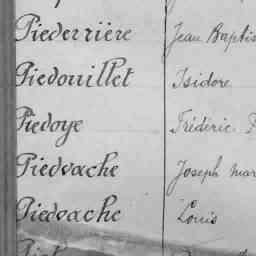 Piederrière Jean Baptis
Piedouillet Isidore
Piedoye Frédéric P
Piedvache Joseph mar
Piedvache Louis